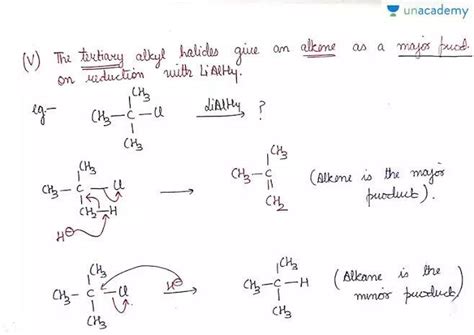 unacademy
(V) The tertiary alkyl halides give an alkene as a major prod.
on reduction with LiAlH4.
eg:-
CH3
CH3-C-Cl
CH3
LiAlH4
?
CH3
CH3-C-Cl
CH2-H
H⊖
CH3
CH3-C
CH2
(Alkene is the major
product).
CH3
CH3-C-Cl
CH3
H⊖
CH3
CH3-C-H
CH3
(Alkane is the
minor product)